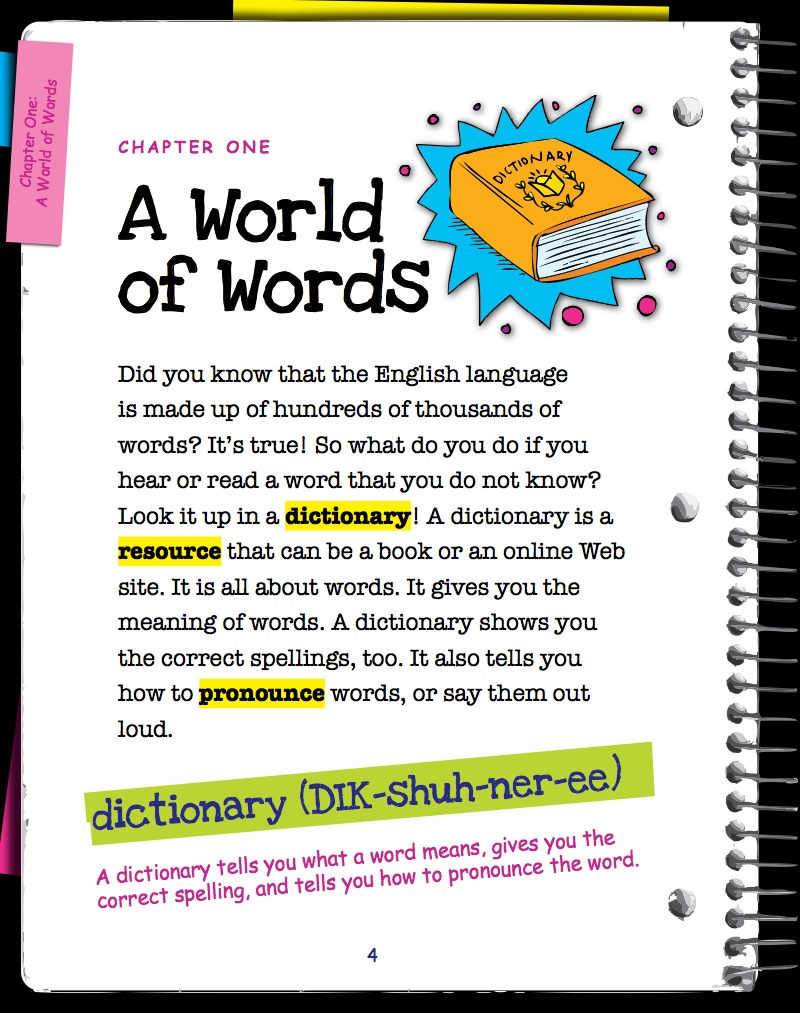 Chapter One:
A World of Words
CHAPTER ONE
A World
of Words
DICTIONARY
Did you know that the English language
is made up of hundreds of thousands of
words? It's true! So what do you do if you
hear or read a word that you do not know?
Look it up in a dictionary! A dictionary is a
resource that can be a book or an online Web
site. It is all about words. It gives you the
meaning of words. A dictionary shows you
the correct spellings, too. It also tells you
how to pronounce words, or say them out
loud.
dictionary (DIK-shuh-ner-ee)
A dictionary tells you what a word means, gives you the
correct spelling, and tells you how to pronounce the word.
4